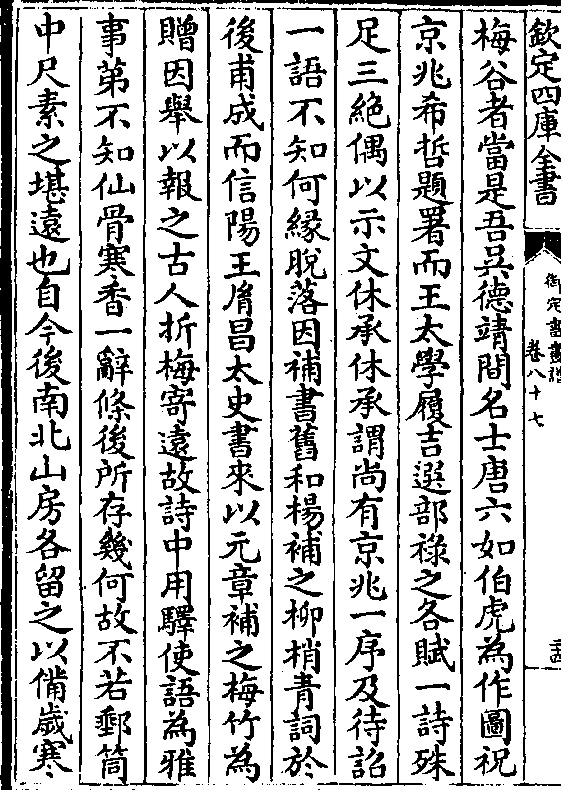 欽定四庫全書
御定書畫譜
卷八十七
梅谷者當是吾吳德靖間名士唐六如伯虎為作圖祝
京兆希哲題署而王太學履吉選部祿之各賦一詩殊
足三絶偶以示文休承休承謂尚有京兆一序及待詔
一語不知何緣脫落因補書舊和楊補之柳梢青詞於
後甫成而信陽王胤昌太史書來以元章補之梅竹為
贈因舉以報之古人折梅寄遠故詩中用驛使語為雅
事第不知仙骨寒香一辭條後所存幾何故不若郵筒
中尺素之堪遠也自今後南北山房各留之以備歲寒